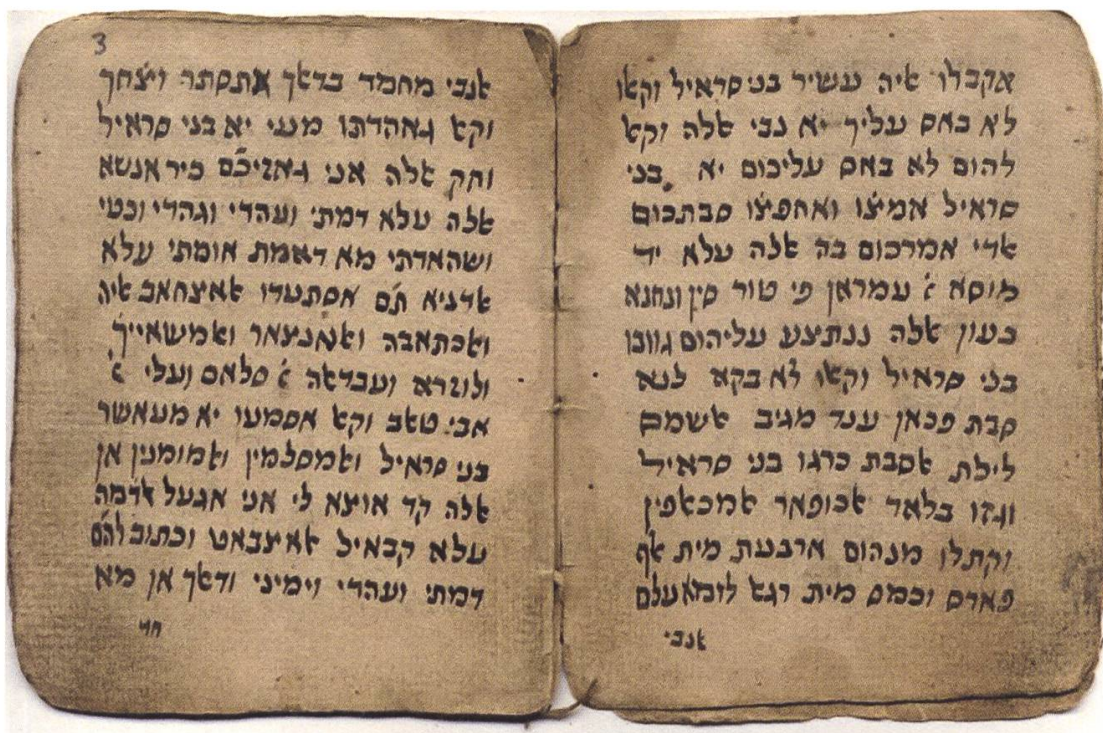 אקבלו ﭏיה עשיר בני סראיל וקﭏו
לא באס עליך יא נבי ﭏלה וקﭏ
להום לא באס עליכום יא בני
סראיל אמיצ̇ו ואחפיצ̇ו סבתכום
ﭏדי אמרכום בה ﭏלה עלא יד
מוסא א̇ עמראן פי טור סין ונחנא
בעון ﭏלה ננתצע עליהום גוובו
בני סראיל וקﭏו לא בקא לנא
סבת פכאן ענד מגיב ﭏשמס
לילת ﭏסבת כרגו בני סראיל
וגזו בלאד ﭏכופאר ﭏמכאפין
וקתלו מנהום ארבעת מית ﭏף
פארס וכמס מית רגﭏ לומא עלם
ﭏנבי
3
ﭏנבי מחמד בדאך אתסתר ויצ̇חך
וקﭏ גאהדתו מעני יא בני סראיל
וחק ﭏלה אני גאזיכ̇ם כיר אנשא
ﭏלה עלא דמתי ועהדי וגהדי וכטי
ושהאדתי מא דאמת אומתי עלא
ﭏדניא ת̇ם אסתעדו ﭏאצחאב ﭏיה
וﭏכתאבה וﭏאנצאר וﭏמשאייך
ולוזרא ועבדﭏה א̇ סלאם ועלי א̇
אבי טﭏב וקﭏ אסמעו יא מעאשר
בני סראיל וﭏמסלמין וﭏמומנין אן
ﭏלה קד אוצא לי אני אגעל ﭏדמה
עלא קבאיל ﭏאיצבאט וכתוב להם
דמתי ועהדי וימיני ודאך אן מא
חד